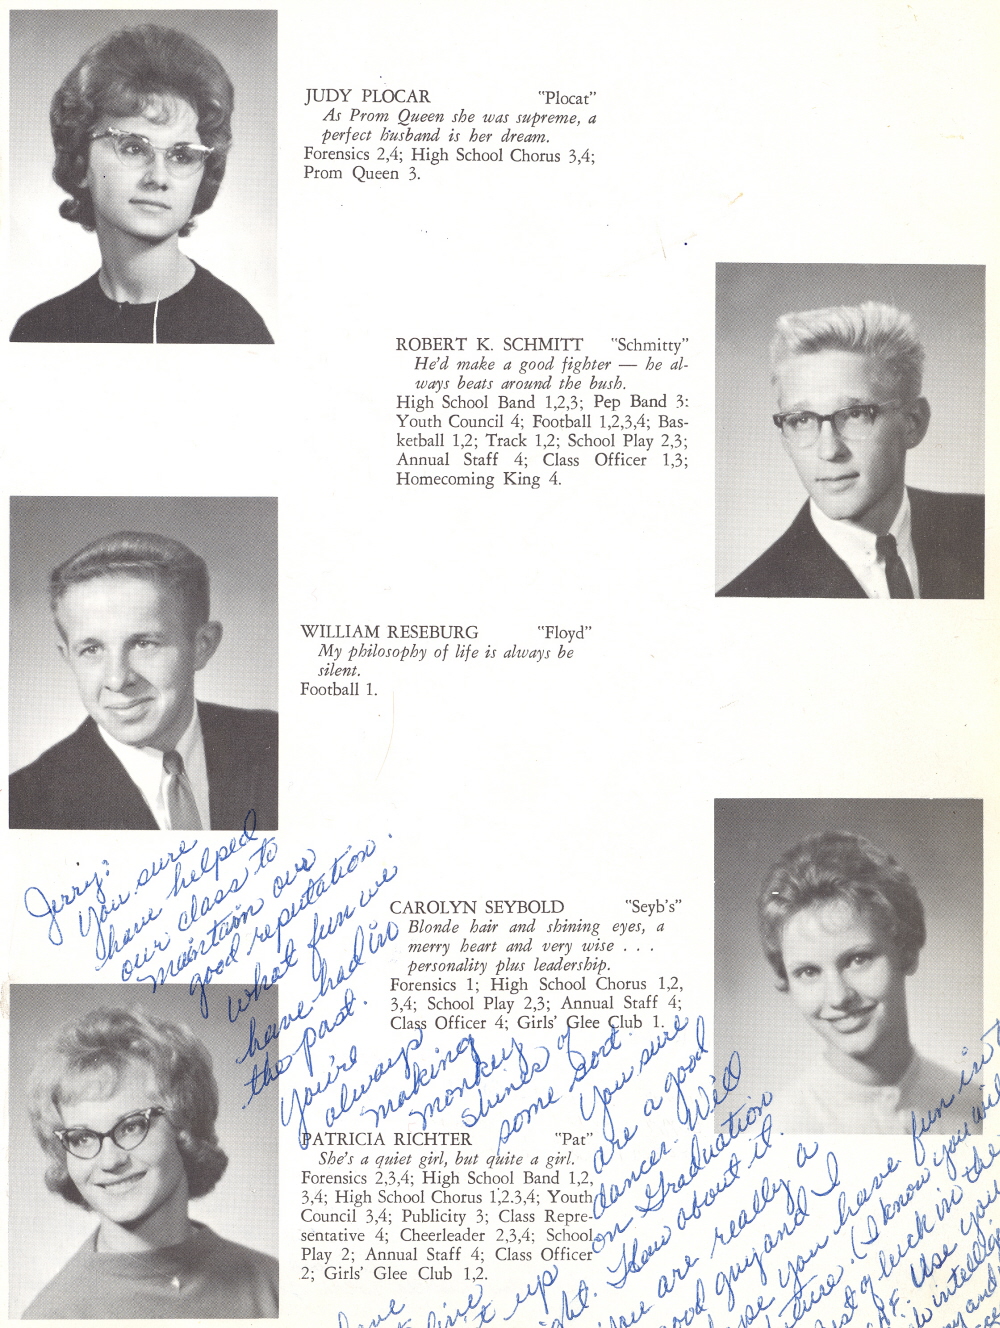 JUDY PLOCAR "Plocat"
As Prom Queen she was supreme, a
perfect husband is her dream.
Forensics 2,4; High School Chorus 3,4;
Prom Queen 3.
ROBERT K. SCHMITT "Schmitty"
He'd make a good fighter — he al-
ways beats around the bush.
High School Band 1,2,3; Pep Band 3:
Youth Council 4; Football 1,2,3,4; Bas-
ketball 1,2; Track 1,2; School Play 2,3;
Annual Staff 4; Class Officer 1,3;
Homecoming King 4.
WILLIAM RESEBURG "Floyd"
My philosophy of life is always be
silent.
Football 1.
CAROLYN SEYBOLD "Seyb's"
Blonde hair and shining eyes, a
merry heart and very wise . . .
personality plus leadership.
Forensics 1; High School Chorus 1,2,
3,4; School Play 2,3; Annual Staff 4;
Class Officer 4; Girls' Glee Club 1.
PATRICIA RICHTER "Pat"
She's a quiet girl, but quite a girl.
Forensics 2,3,4; High School Band 1,2,
3,4; High School Chorus 1,2.3,4; Youth
Council 3,4; Publicity 3; Class Repre-
sentative 4; Cheerleader 2,3,4; School
Play 2; Annual Staff 4; Class Officer
2; Girls' Glee Club 1,2.
Jerry:
You sure
have helped
our class to
maintain our
good reputation.
What fun we
have had in
the past.
You're
always
making
monkey
shines of
some sort.
You sure
are a good
dancer. We'll
have
live
it up
on Graduation
night. How about it.
You are really a
good guy and I
hope you have fun in
future. (I know you will
best of luck in the
Use your
intellig